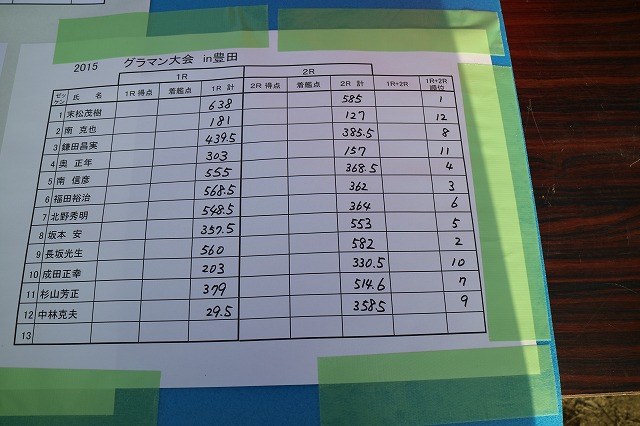 2015 グラマン大会 in豊田
1R 2R
ゼッケン 氏 名 1R 得点 着艦点 1R 計 2R 得点 着艦点 2R 計 1R+2R 1R+2R 順位
1 末松茂樹 638 585 1
2 南 克也 181 127 12
3 鎌田昌実 439.5 385.5 8
4 奥 正年 303 157 11
5 南 信彦 555 368.5 4
6 福田裕治 568.5 362 3
7 北野秀明 548.5 364 6
8 坂本 安 357.5 553 5
9 長坂光生 560 582 2
10 成田正幸 203 330.5 10
11 杉山芳正 379 514.6 7
12 中林克夫 29.5 358.5 9
13